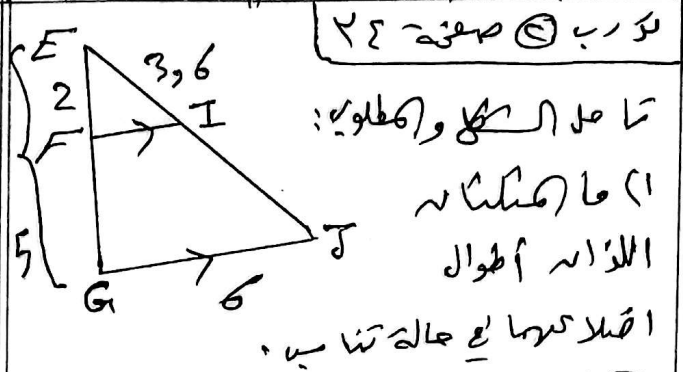 تدرب ② صفحة ٢٤
تأمل الشكل والمطلوب:
١) ما المثلثان
اللذان أطوال
اضلاعهما في حالة تناسب.
E
3,6
2
I
F
5
J
G
6